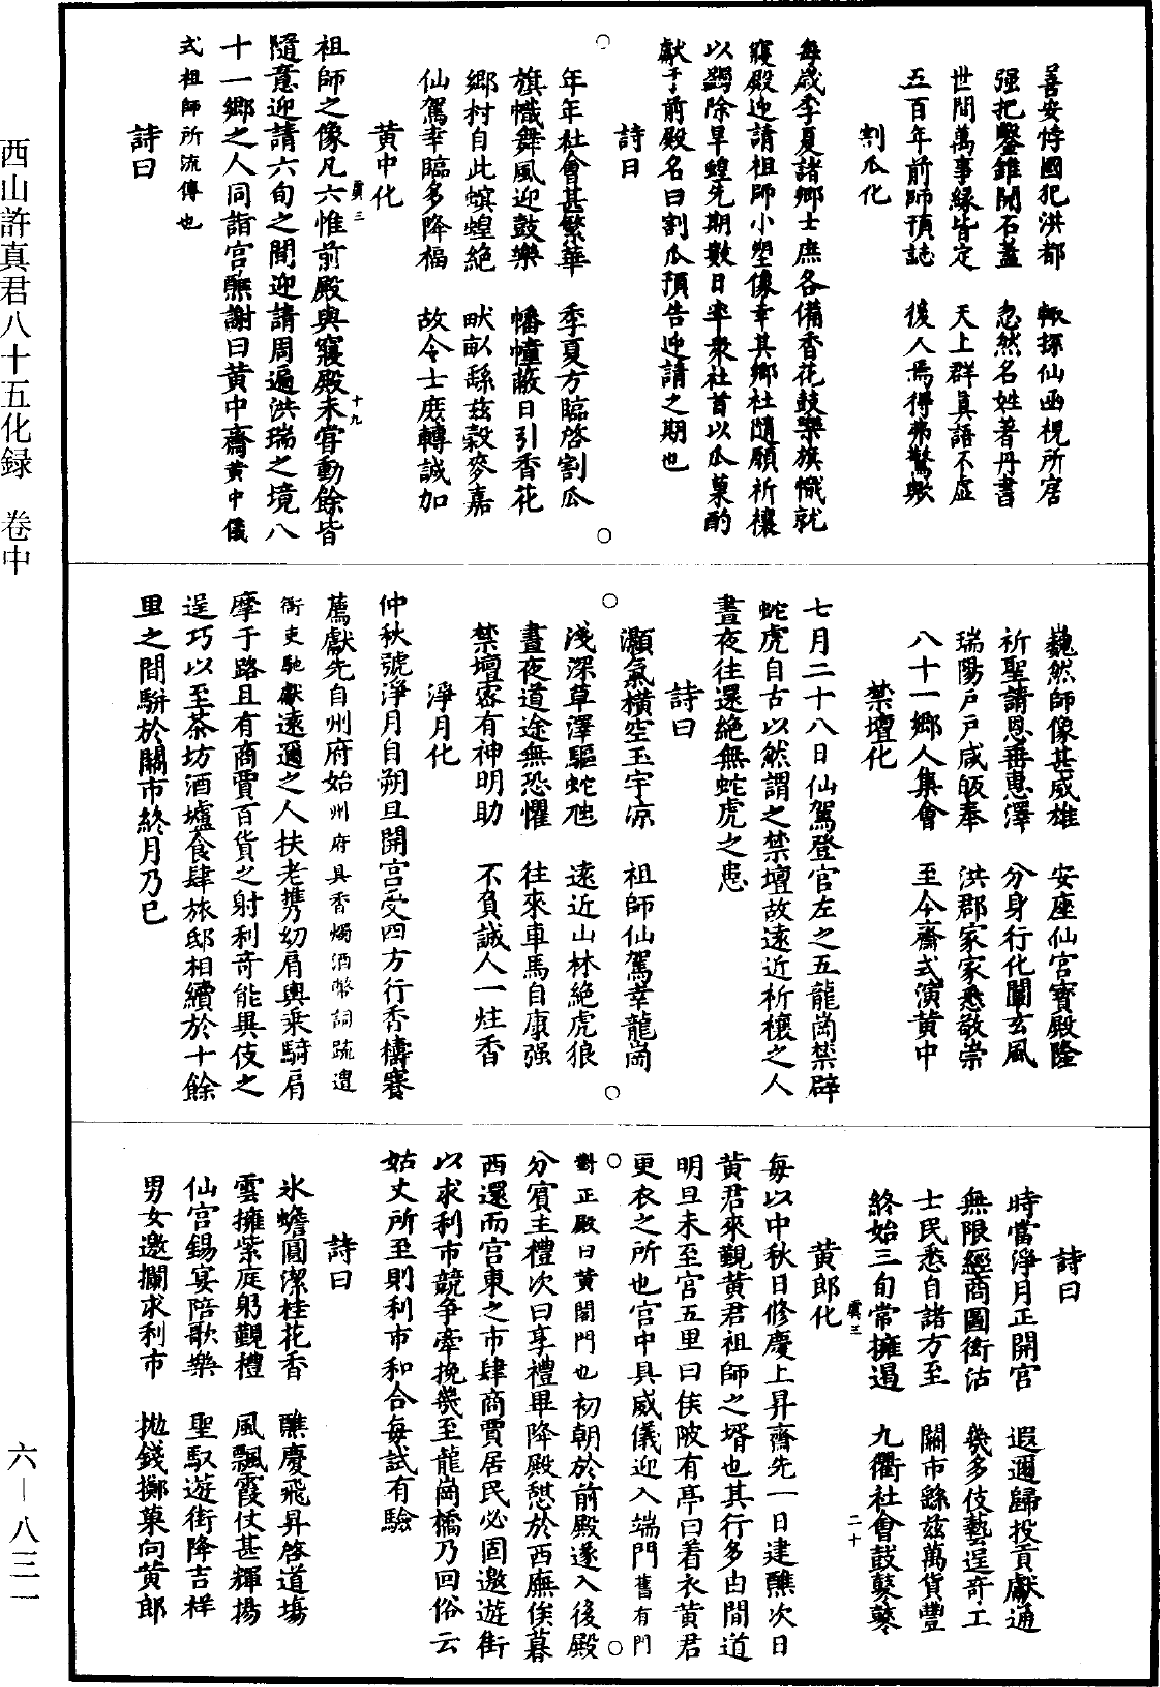 善安悖國犯洪都　輙探仙函視所窖
强把鑿錐開石蓋　忽然名姓著丹書
世間萬事縁皆定　天上群真語不虛
五百年前師預誌　後人焉得弗驚歟
割瓜化
每歲季夏諸鄉士庶各備香花鼓樂旗幟就
寢殿迎請祖師小塑像幸其鄉社隨願祈禳
以蠲除旱蝗先期數日率衆社首以瓜菓酌
獻于前殿名曰割瓜預告迎請之期也
詩曰
年年社會甚繁華　季夏方臨啓割瓜
旗幟舞風迎鼓樂　幡幢蔽日引香花
鄉村自此螟蝗絶　畎畝繇兹穀麥嘉
仙駕幸臨多降福　故令士庶轉誠加
黃中化
祖師之像凡六惟前殿與寢殿未甞動餘皆
隨意迎請六旬之間迎請周遍洪瑞之境八
十一鄉之人同詣宫醮謝曰黃中齋黃中儀
式祖師所流傳也
詩曰
巍然師像甚威雄　安座仙宮寶殿隆
祈聖請恩垂惠澤　分身行化闡玄風
瑞陽戶戶咸皈奉　洪郡家家悉敬崇
八十一鄉人集會　至今齋式演黃中
禁壇化
七月二十八日仙駕登宫左之五龍崗禁辟
蛇虎自古以然謂之禁壇故遠近祈禳之人
晝夜往還絶無蛇虎之患
詩曰
顥氣橫空玉宇凉　祖師仙駕幸龍崗
淺深草澤驅蛇虺　遠近山林絶虎狼
晝夜道途無恐懼　往來車馬自康强
禁壇密有神明助　不負誠人一炷香
淨月化
仲秋號淨月自朔旦開宫受四方行香禱賽
薦獻先自州府始州府具香燭酒幣詞疏遣
衙吏馳獻遠邇之人扶老携幼肩輿乘騎肩
摩于路且有商賈百貨之射利奇能異伎之
逞巧以至茶坊酒壚食肆旅邸相續於十餘
里之間駢於闤市終月乃已
詩曰
時當淨月正開宫　遐邇歸投貢獻通
無限經商圖衒沽　幾多伎藝逞奇工
士民悉自諸方至　闤市繇兹萬貨豐
終始三旬常擁遏　九衢社會鼓鼕鼕
黃郎化
每以中秋日修慶上昇齋先一日建醮次日
黃君來覲黃君祖師之壻也其行多由間道
明旦未至宫五里曰侯陂有亭曰着衣黃君
更衣之所也宫中具威儀迎入端門舊有門
對正殿曰黃閤門也初朝於前殿遂入後殿
分賓主禮次曰享禮畢降殿憇於西廡俟暮
西還而宫東之市肆商賈居民必固邀遊街
以求利市競争牽挽幾至龍崗橋乃回俗云
姑丈所至則利市和合每試有驗
詩曰
氷蟾圓潔桂花香　醮慶飛昇啓道塲
雲擁紫庭躬覲禮　風飄霞仗甚輝揚
仙宫錫宴陪歌樂　聖馭遊街降吉祥
男女邀攔求利市　拋錢擲菓向黃郎
虞三
十九
虞三
二十
西山許真君八十五化録　卷中
六—八三一